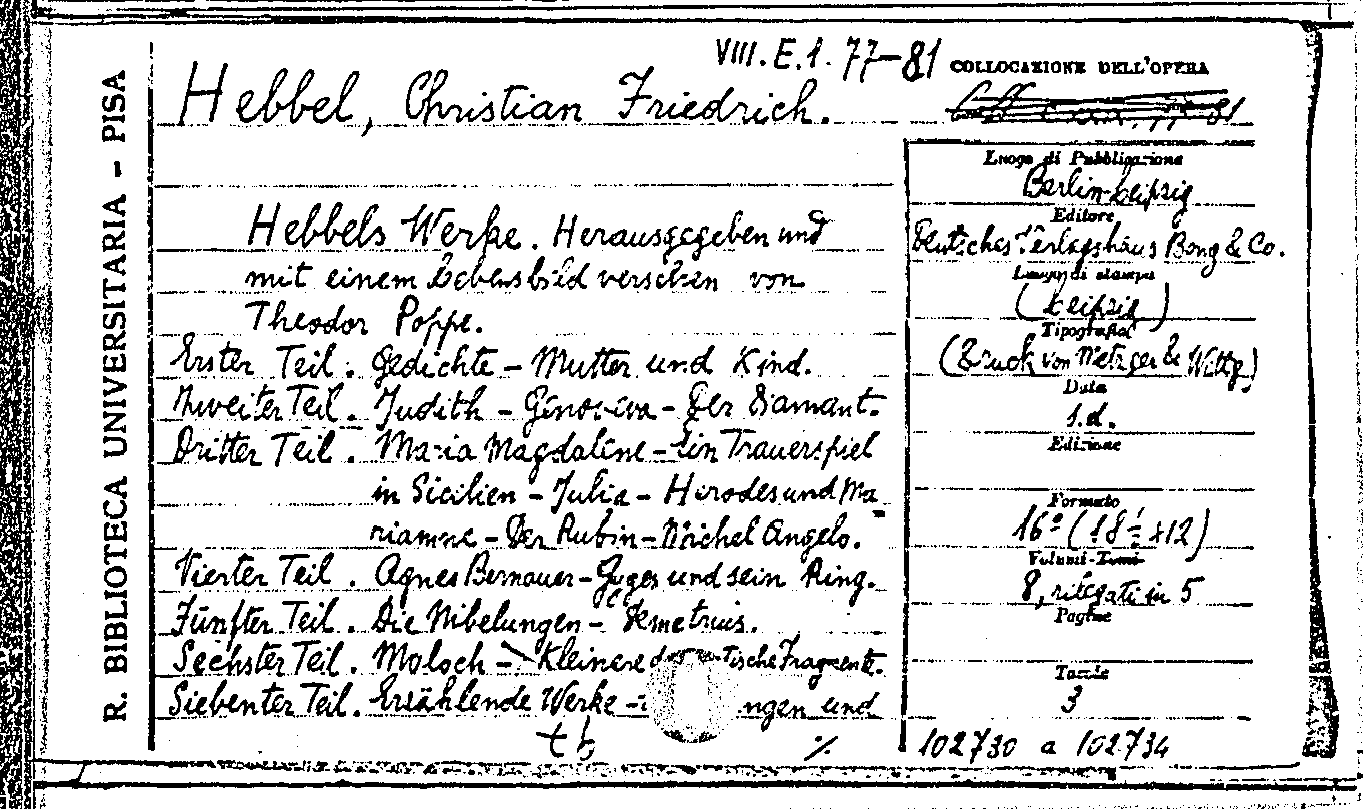 R. BIBLIOTECA UNIVERSITARIA - PISA
VIII. E. 1. 77-81
COLLOCAZIONE DELL'OPERA
Hebbel, Christian Friedrich.
77-81
Hebbels Werke. Herausgegeben und
mit einem Lebensbild versehen von
Theodor Poppe.
Erster Teil. Gedichte - Mutter und Kind.
Zweiter Teil. Judith - Genoveva - Der Diamant.
Dritter Teil. Maria Magdalene - Ein Trauerspiel
in Sicilien - Julia - Herodes und Ma-
riamne - Der Rubin - Michel Angelo.
Vierter Teil. Agnes Bernauer - Gyges und sein Ring.
Fünfter Teil. Die Nibelungen - Demetrius.
Sechster Teil. Moloch - Kleinere Fragmente.
Siebenter Teil. Erzählende Werke - ngen und
t b
%
Luogo di Pubblicazione
Berlin-Leipzig
Editore
Deutsches Verlagshaus Bong & Co.
Luogo di stampa
(Leipzig)
Tipografia
(Druck von Metzger & Wittig)
Data
s.d.
Edizione
Formato
16º (18 ½ x12)
Volumi-Tomi
8, rilegati in 5
Pagine
Tavole
3
102730 a 102734